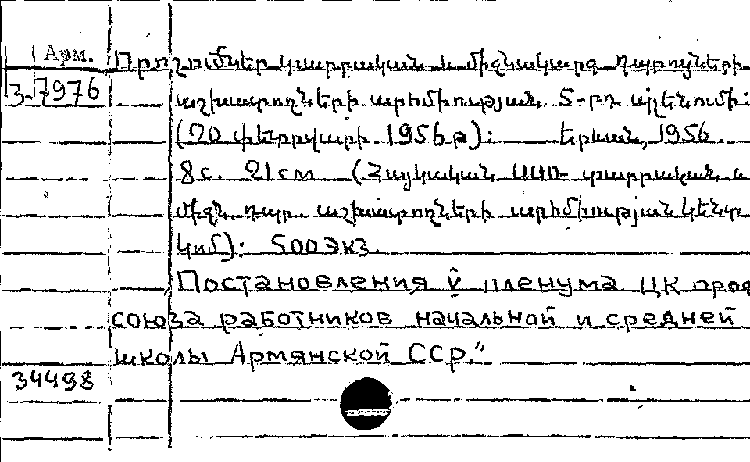 Арм.
Որոշումներ տարրական և միջնակարգ դպրոցների
3-7976
աշխատողների արհմիության 5-րդ պլենումի:
(20 փետրվարի 1956թ): Երևան, 1956.
8с. 21см (Հայկական ՍՍՌ տարրական և
միջն. դպր. աշխատողների արհմիության կենտ
կոմ): 500экз.
Постановления V пленума ЦК проф
союза работников начальной и средней
школы Армянской ССР."
34498